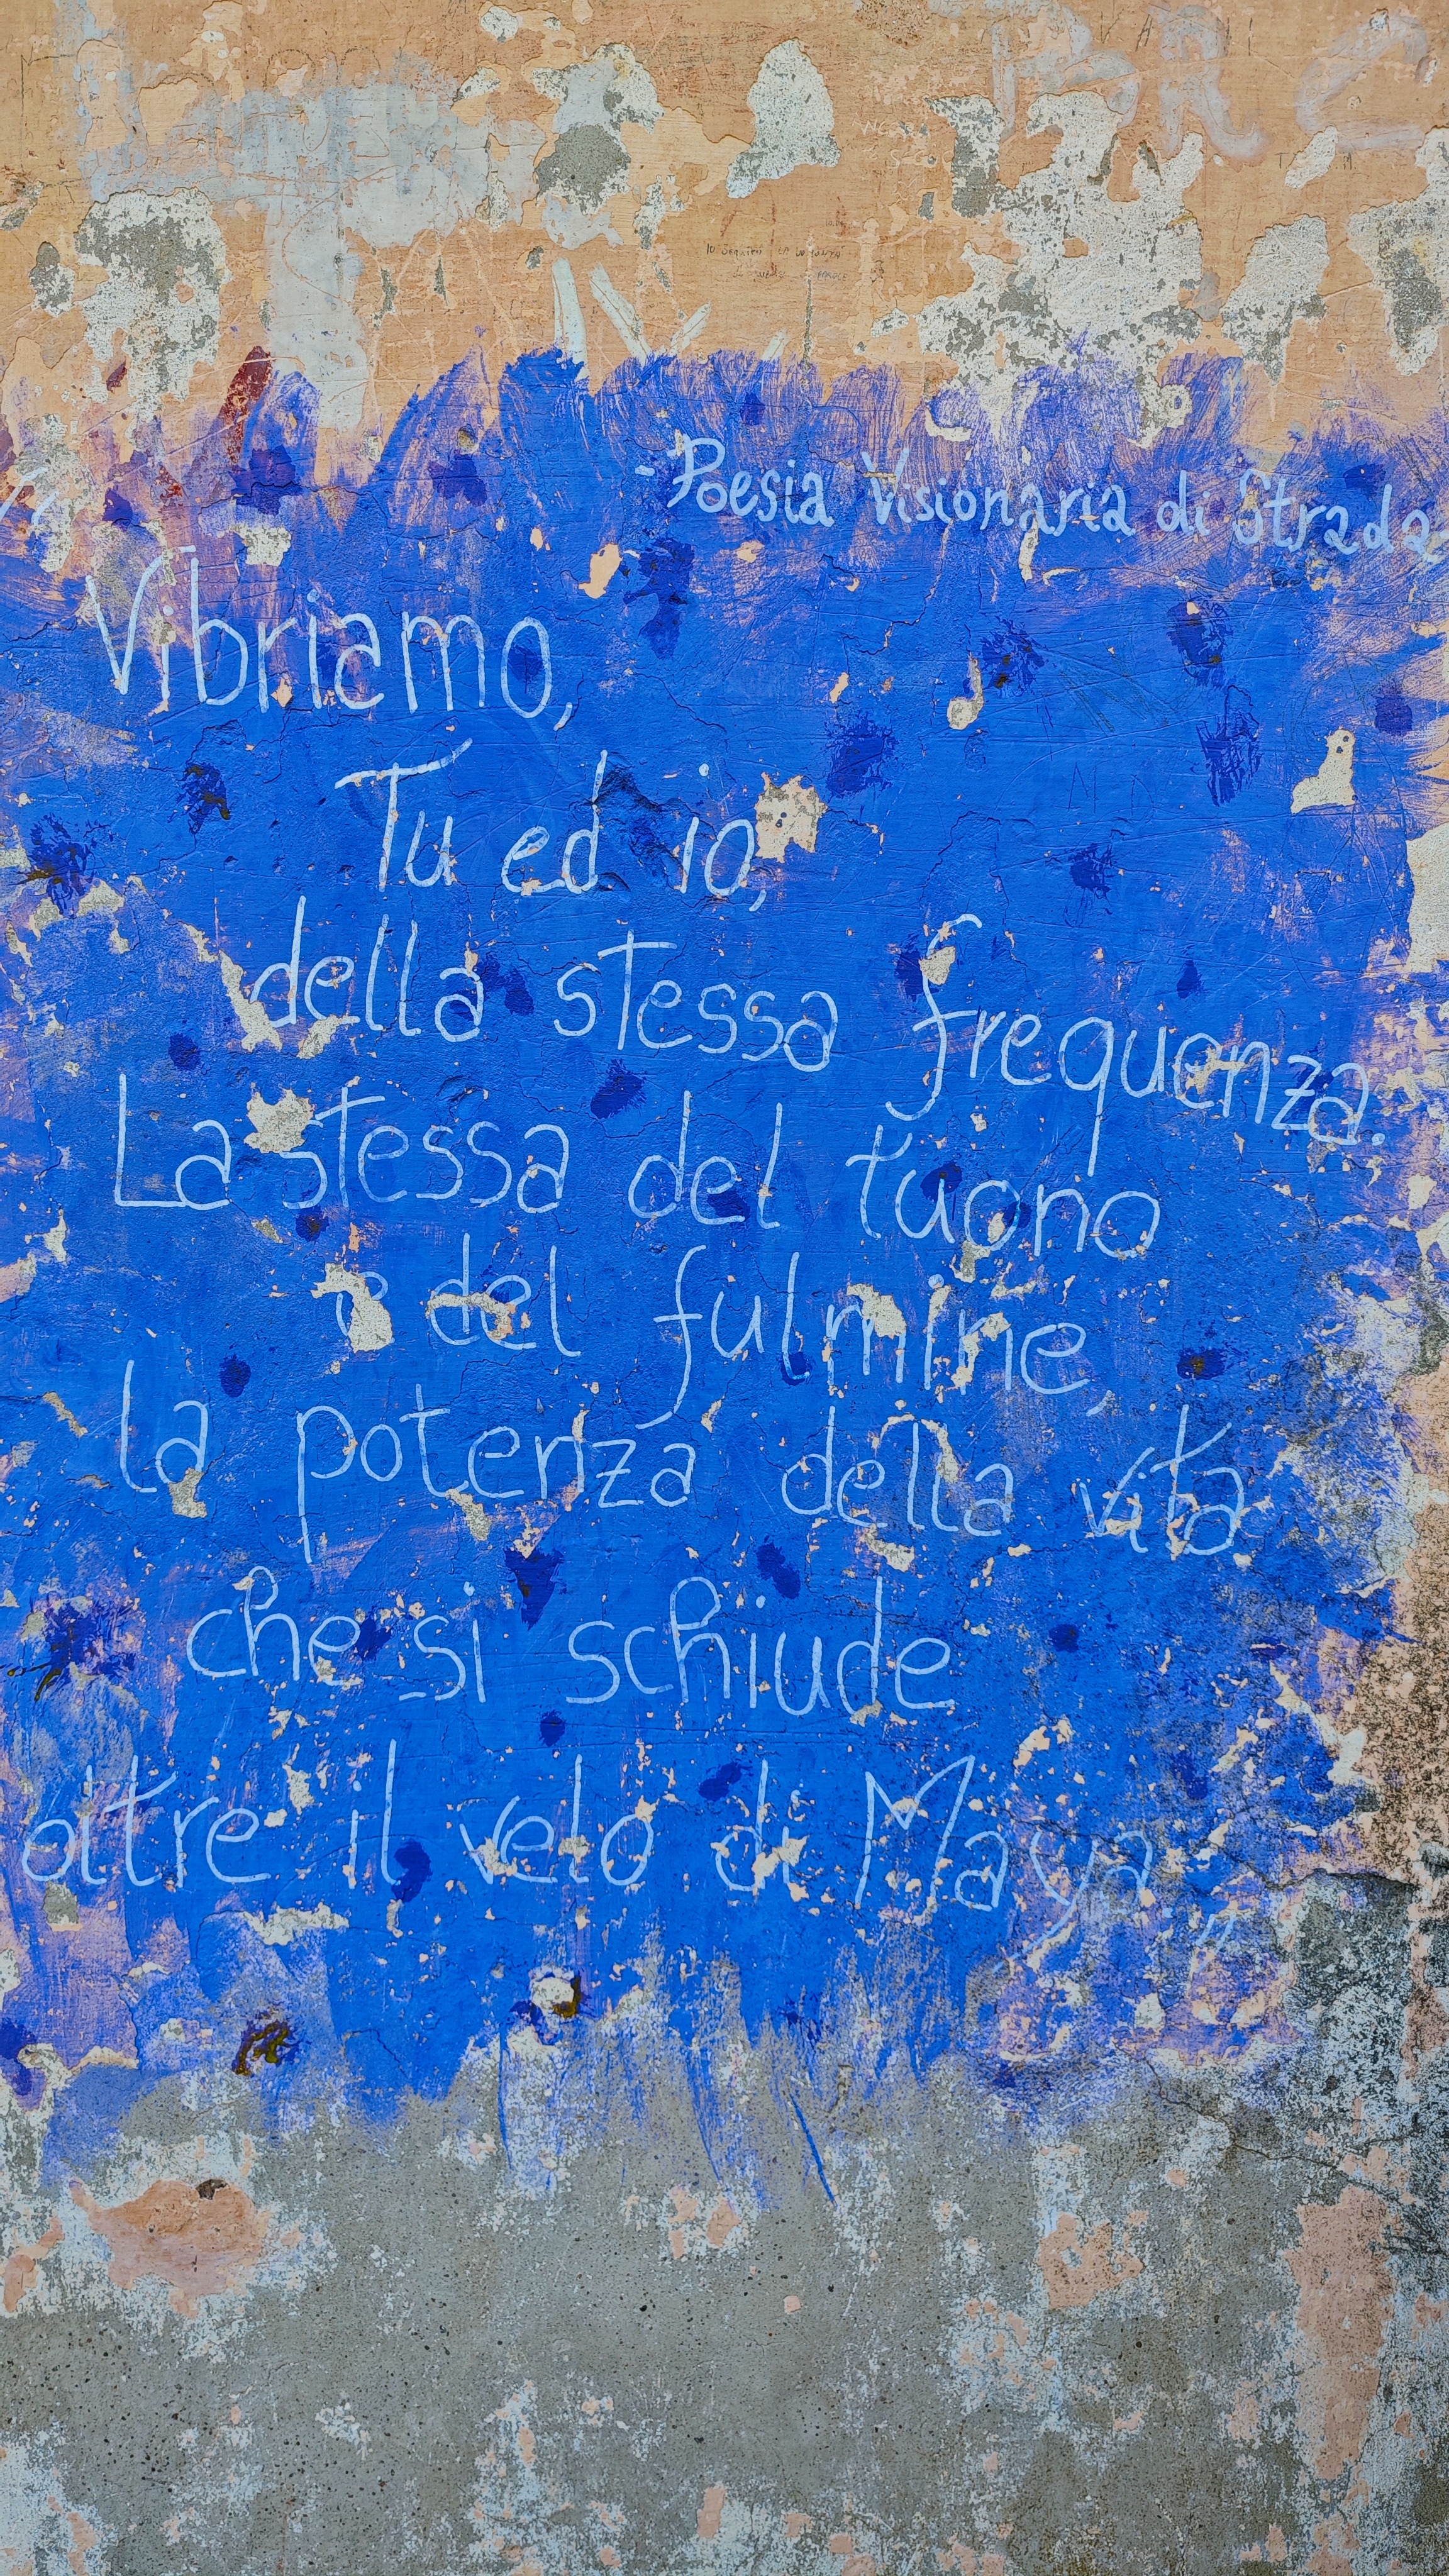 - Poesia Visionaria di Strada
Vibriamo,
Tu ed io,
della stessa frequenza.
La stessa del tuono
e del fulmine,
la potenza della vita
che si schiude
oltre il velo di Maya"